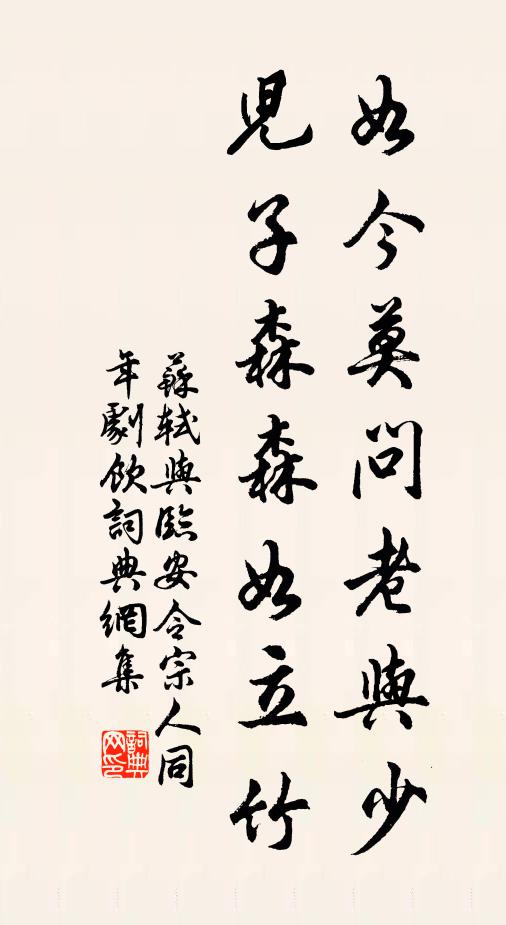 如今莫問老與少
兒子森森如立竹
蘇軾與臨安令宗人同
年劇飲詞典網集
詞典
网印